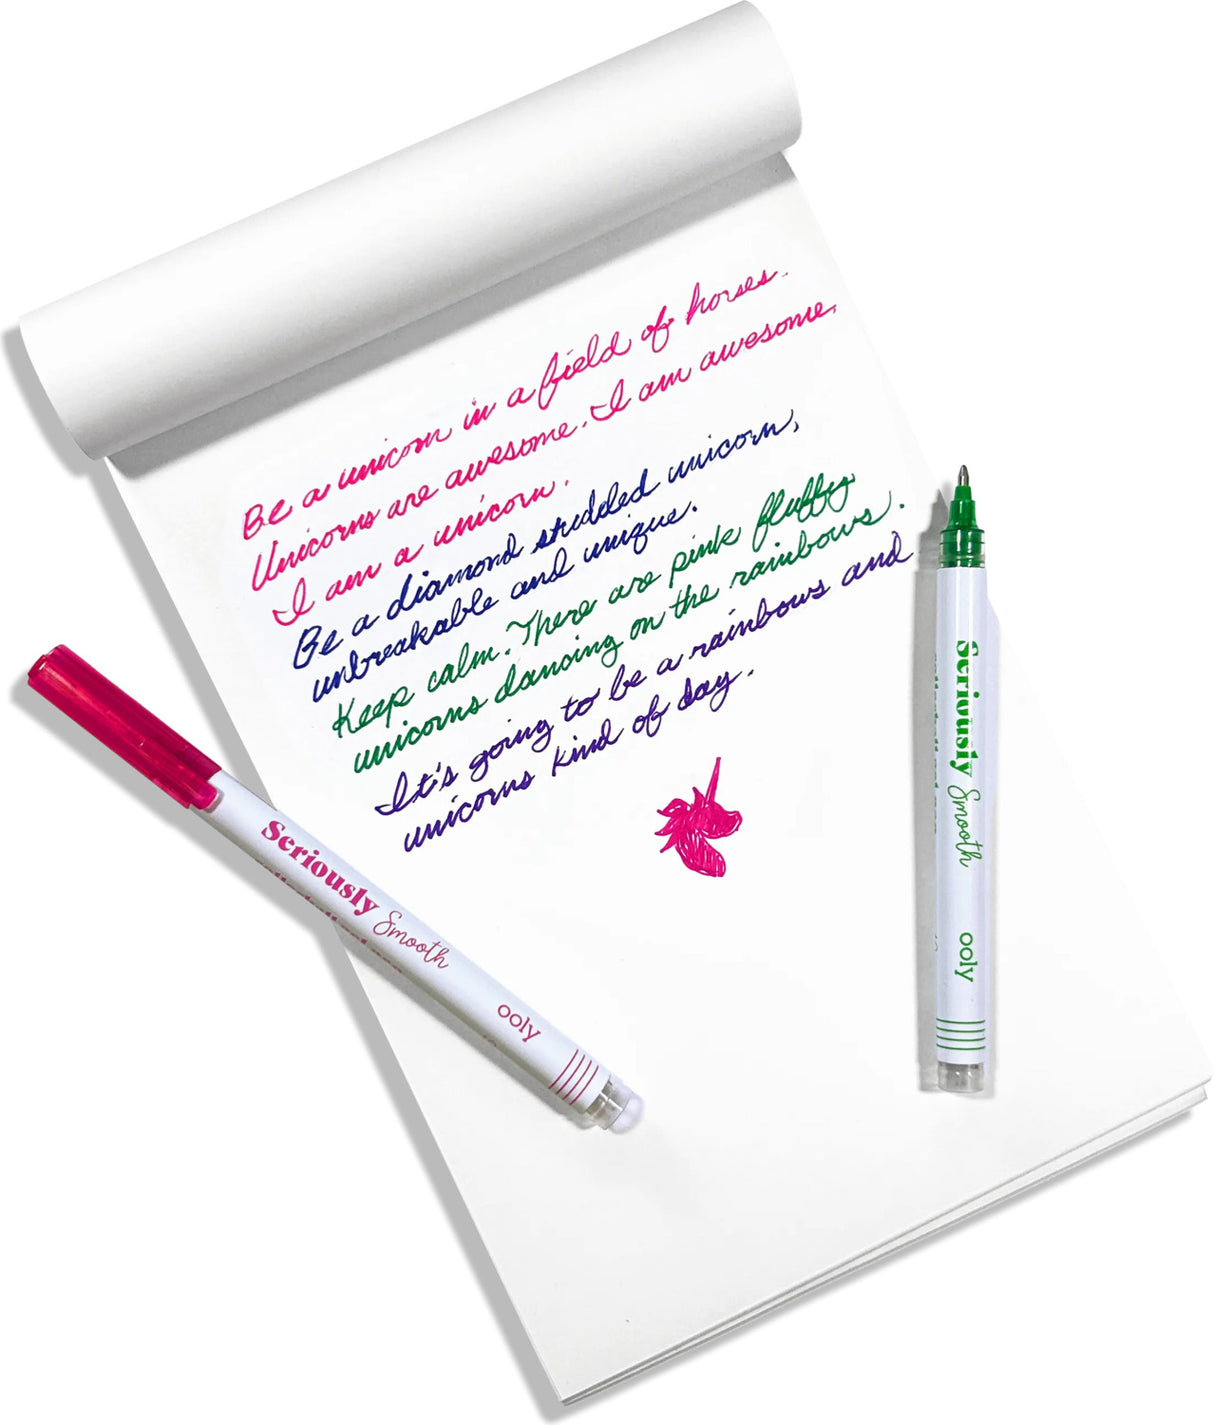 Be a unicorn in a field of horses.
Unicorns are awesome. I am awesome.
I am a unicorn.
Be a diamond studded unicorn,
unbreakable and unique.
Keep calm. There are pink fluffy
unicorns dancing on the rainbows.
It's going to be a rainbows and
unicorns kind of day.
Seriously Smooth
ooly
Seriously Smooth
ooly